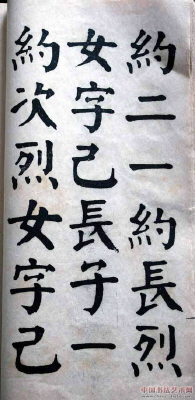 約二一約長烈
女字己長子一
約次烈女字己
中国书法艺术网